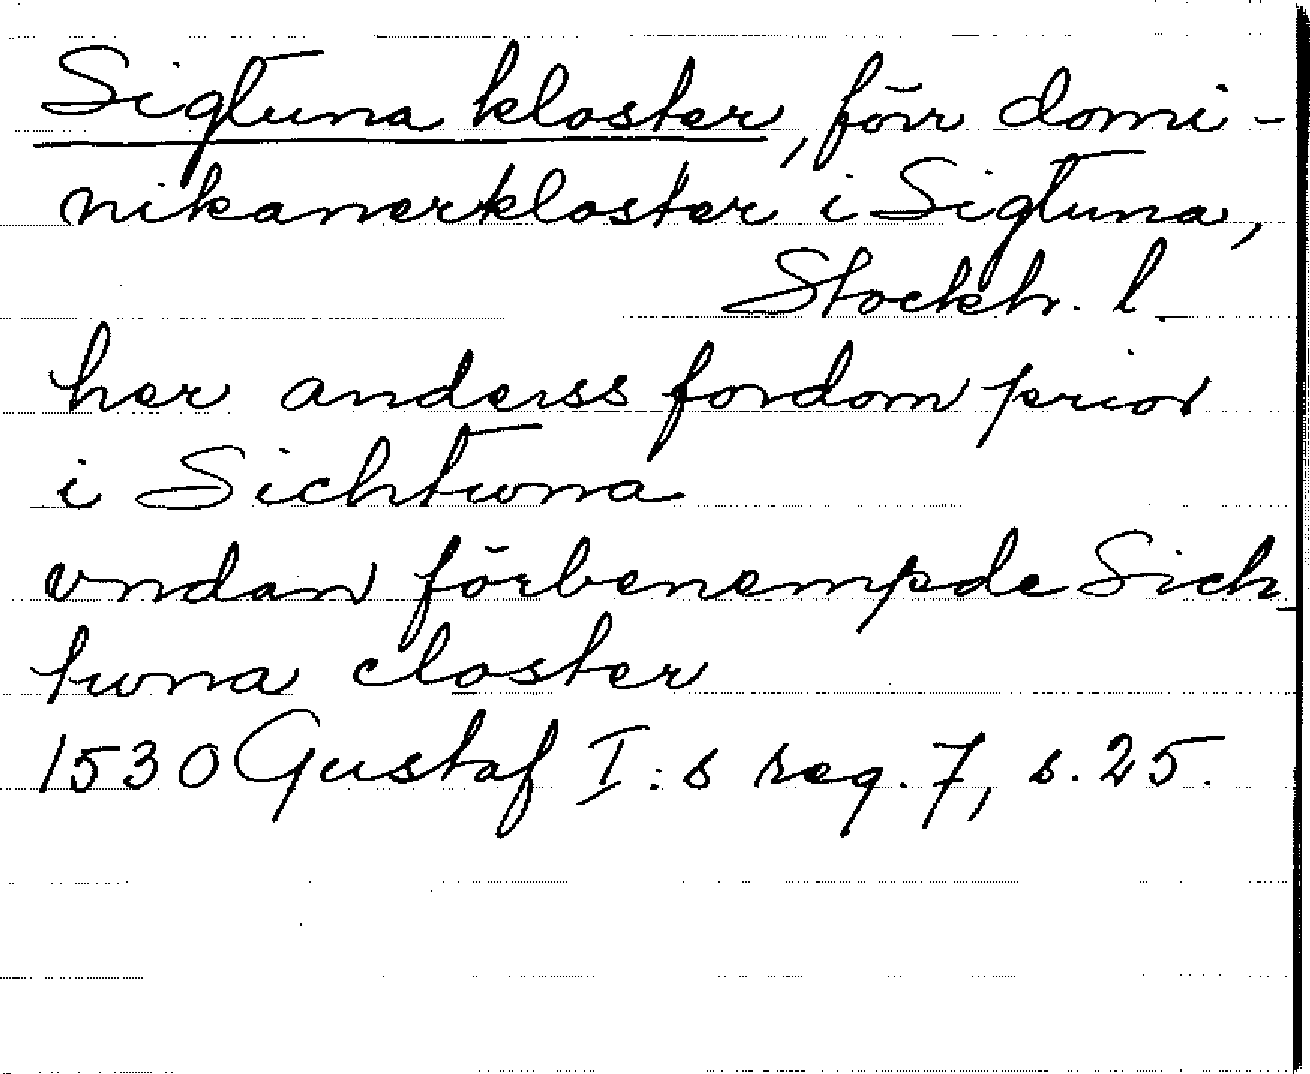 Sigtuna kloster, förr domi-
nikanerkloster i Sigtuna,
Stockh. l.
her anderss fordom prior
i Sichtuna
vndan förbenempde Sich-
tuna closter
1530 Gustaf I:s reg. 7, s. 25.